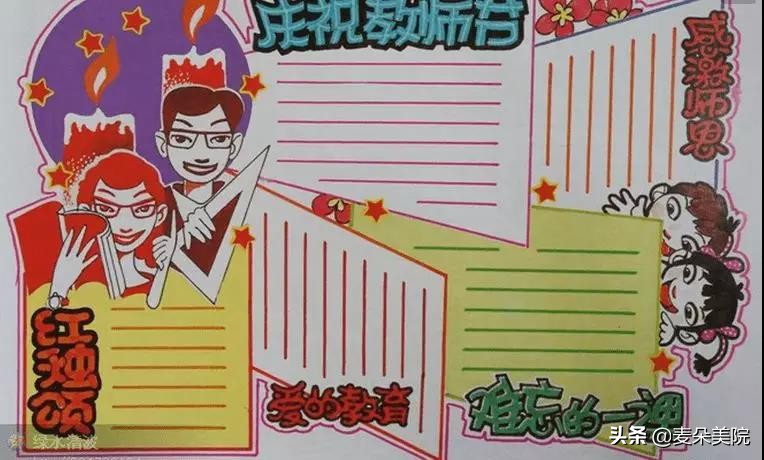 庆祝教师节
感激师恩
红烛颂
爱的教育
难忘的一课
绿水清波
头条 @麦朵美院